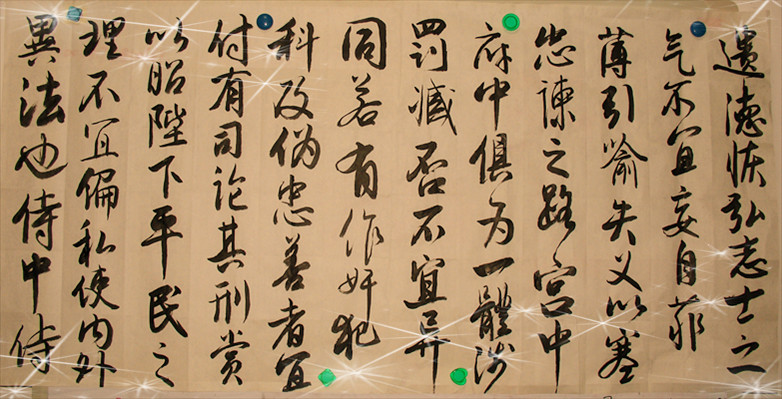 遺德恢弘志士之
气不宜妄自菲
薄引喻失义以塞
忠諫之路宫中
府中俱为一體陟
罚臧否不宜异
同若有作奸犯
科及伪忠善者宜
付有司论其刑赏
以昭陛下平民之
理不宜偏私使内外
異法也侍中侍